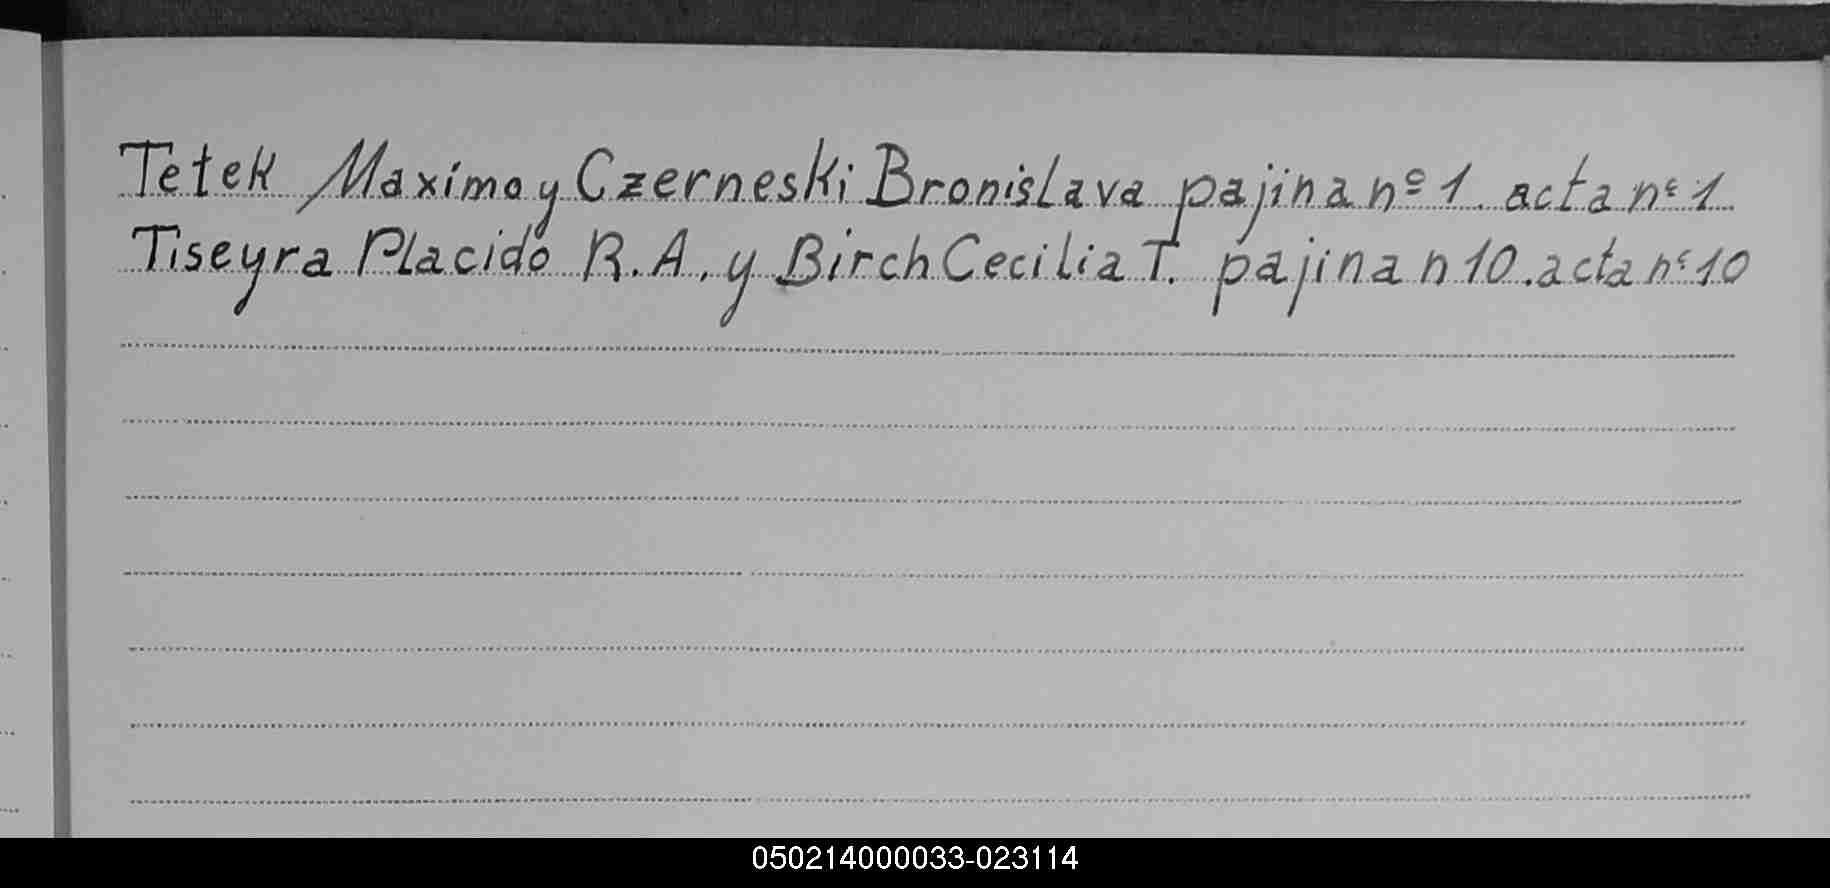 Tetek Maximo y Czerneski Bronislava pajina nº 1. acta nº 1
Tiseyra Placido R.A. y Birch Cecilia T. pajina n 10. acta nº 10
050214000033-023114